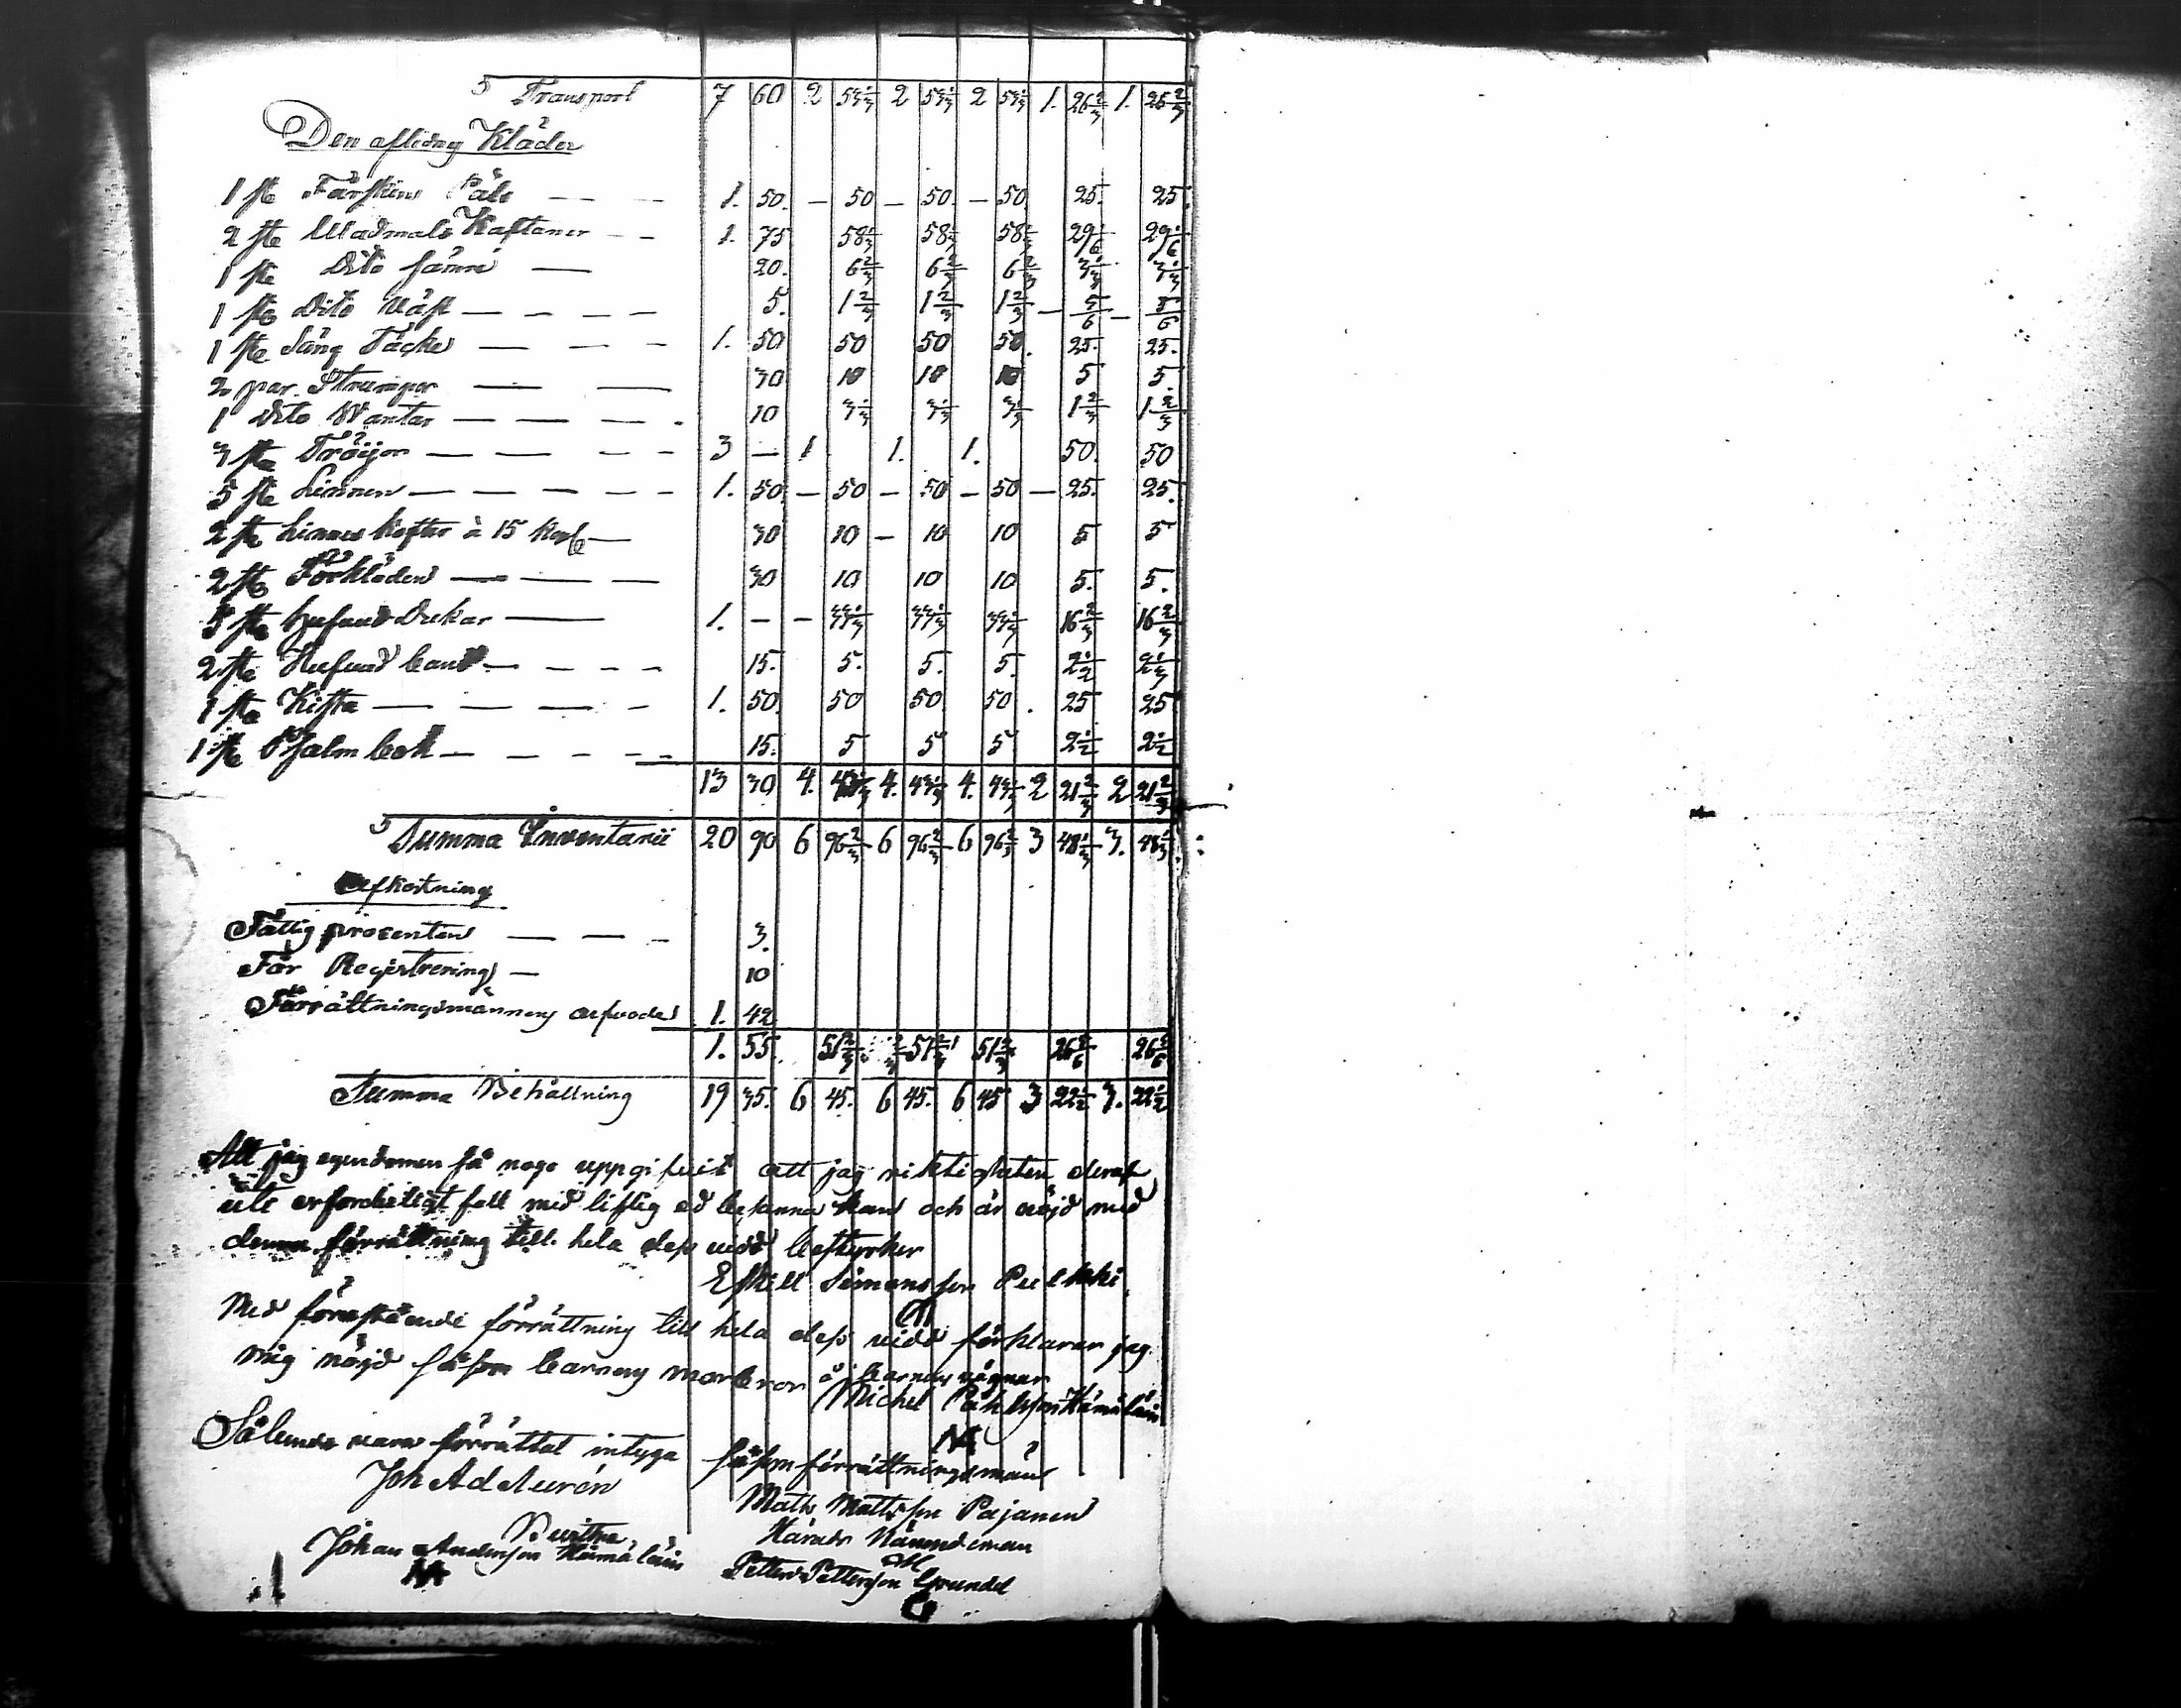 Transport 7 60 2 53⅓ 2 53⅓ 2 53⅓ 1. 26⅔ 1. 26⅔
Den aflidnes Kläder
1 st Fårskins Päls — — — 1. 50. — 50 — 50. — 50 25. 25.
2 st Wadmals Kaftaner — — 1. 75 58⅓ 58⅓ 58⅓ 29⅙ 29⅙
1 st Dito sämre — 20. 6⅔ 6⅔ 6⅔ 3⅓ 3⅓
1 st Dito Väst — — — — 5. 1⅔ 1⅔ 1⅔ — ⅚ — ⅚
1 st Säng Täcke — — — 1. 50 50 50 50. 25. 25.
2 par Strumpor — — 30 10 10 10 5 5.
1 Dito Wantar — — — — 10 3⅓ 3⅓ 3⅓ 1⅔ 1⅔
3 st Tröijor — — — — 3 — 1 1. 1. 50. 50
5 st Linnen — — — — — 1. 50. — 50 — 50 — 50 — 25. 25.
2 st Linnes Koftor à 15 Kop — 30 10 — 10 10 5 5
2 st Förkläden — — — 30 10 10 10 5. 5.
3 st Hufvud Dukar — 1. — — 33⅓ 33⅓ 33⅓ 16⅔ 16⅔
2 st Hufvud band — — — — 15. 5. 5. 5. 2½ 2½
1 st Kista — — — — 1. 50. 50 50 50. 25 25
1 st Psalm bok — — — — 15. 5 5 5 2½ 2½
13 30 4. 43⅓ 4. 43⅓ 4. 43⅓ 2 21⅔ 2 21⅔
Summa Inventarii 20 90 6 96⅔ 6 96⅔ 6 96⅔ 3 48⅓ 3. 48⅓
Afkortning
Fattig procenten — — — 3.
För Registrering — 10
Förrättningsmännens arfvode 1. 42
1. 55. 51⅔ 51⅔ 51⅔ 26⅚ 26⅚
Summa Behållning 19 35. 6 45. 6 45. 6 45 3 22½ 3. 22½
Att jag egendomen så noga uppgifvit att jag riktigheten deraf
uti erforderligt fall med liflig ed bekänna kan och är nöjd med
denna förrättning till hela dess vidd bestyrker
Eskill Simonsson Pulkki
Med förestående förrättning till hela dess vidd förklarar jag
mig nöjd såsom barnens morbror å barnens vägnar
Michel Påhlsson Hämäläin
Sålunda vara förrättat intyga såsom förrättningsmän
Joh Ad Aurén
Math Mattsson Pajanen
Härads Nämndeman
Johan Andersson Hämäläin
Petter Pettersson Grundel